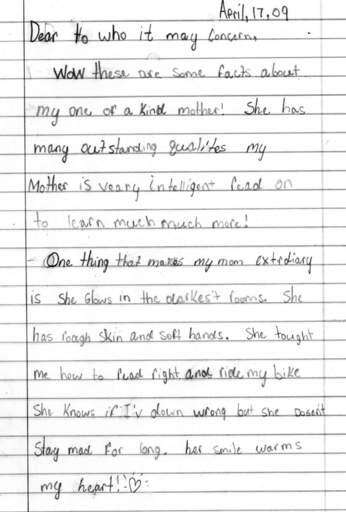 April, 17, 09
Dear to who it may Concern,
Wow these are some facts about
my one of a kind mother! She has
many outstanding qualites my
Mother is veary intelligent read on
to learn much much more!
One thing that makes my mom extrdiary
is She Glows in the darkes't rooms. She
has rough Skin and soft hands. She tought
me how to read right and ride my bike
She Knows if I'v down wrong but she Doesn't
Stay mad for long. her smile warms
my heart! ♡